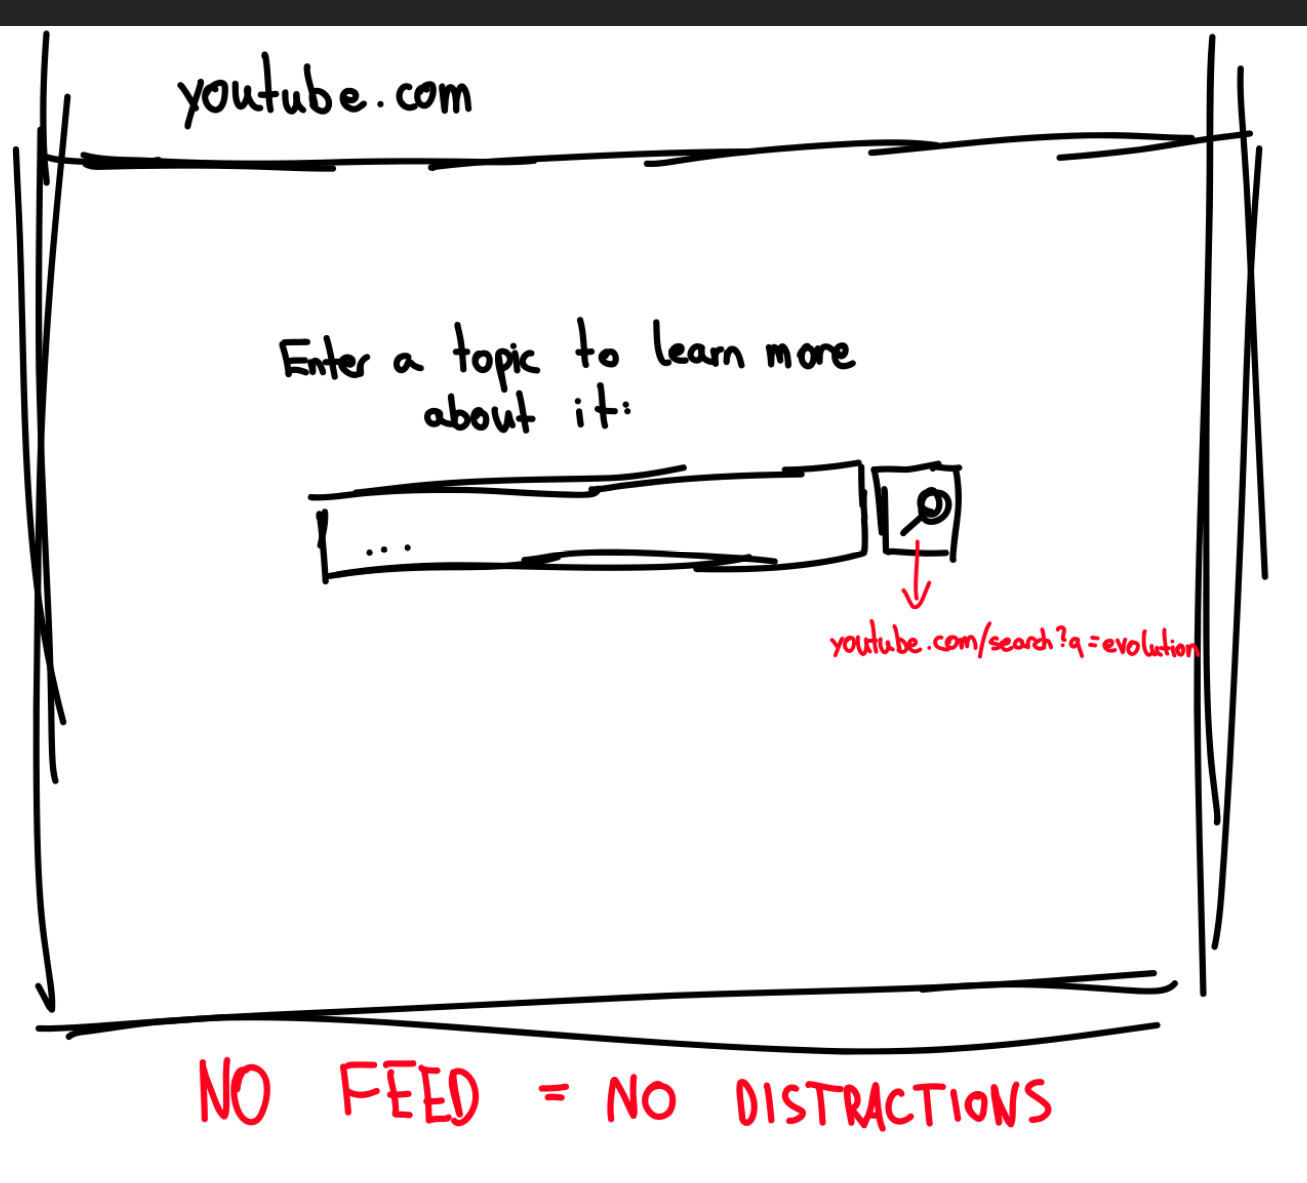 youtube.com
Enter a topic to learn more
about it:
...
youtube.com/search?q=evolution
NO FEED = NO DISTRACTIONS